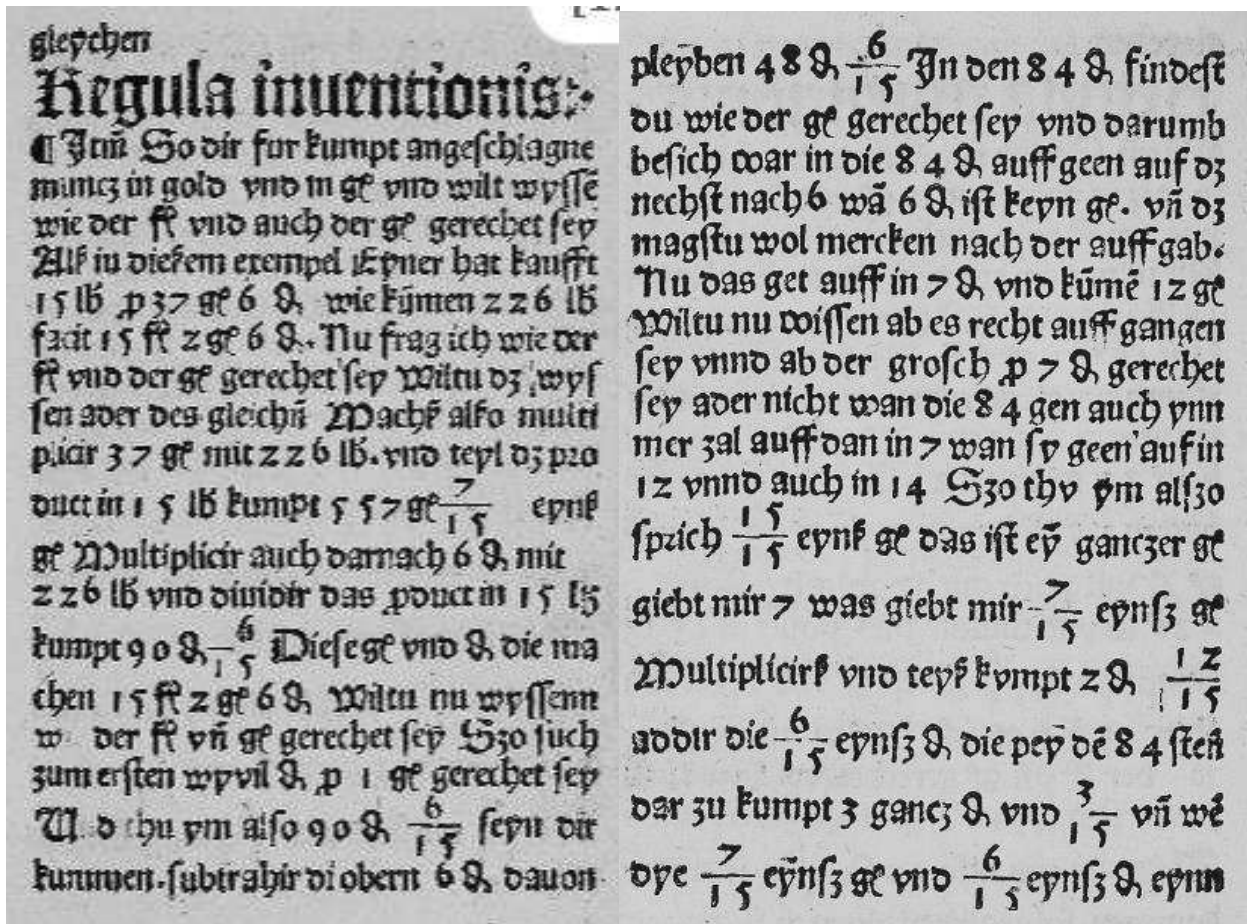 gleychen
Regula inuentionis:·
¶ Itm̄ So dir fur kumpt angeschlagne
muncz in gold vnd in gꝭ vnd wilt wyssē
wie der fꝭ vnd auch der gꝭ gerechet sey
Alß in dießem exempel Eyner hat kaufft
15 lb ꝓ 37 gꝭ 6 ₰ wie kūmen 226 lb
facit 15 fꝭ 2 gꝭ 6 ₰. Nu frag ich wie der
fꝭ vnd der gꝭ gerechet sey Wiltu dz wys
sen ader des gleichn̄ Machß alßo multi
plicir 37 gꝭ mit 226 lb. vnd teyl dz pro
duct in 15 lb kumpt 557 gꝭ 7/15 eynß
gꝭ Multiplicir auch darnach 6 ₰ mit
226 lb vnd diuidir das ꝓduct in 15 lb
kumpt 90 ₰ 6/15 Diese gꝭ vnd ₰ die ma
chen 15 fꝭ 2 gꝭ 6 ₰ Wiltu nu wyssenn
der fꝭ vn̄ gꝭ gerechet sey Szo such
zum ersten wyvil ₰ ꝓ 1 gꝭ gerechet sey
thu ym also 90 ₰ 6/15 seyn dir
kummen. subtrahir di obern 6 ₰ dauon
pleyben 48 ₰ 6/15 In den 84 ₰ findest
du wie der gꝭ gerechet sey vnd darumb
besich war in die 84 ₰ auff geen auf dz
nechst nach 6 wā 6 ₰ ist keyn gꝭ. vn̄ dz
magstu wol mercken nach der auffgab.
Nu das get auff in 7 ₰ vnd kūmē 12 gꝭ
Wiltu nu wissen ab es recht auff gangen
sey vnnd ab der grosch ꝓ 7 ₰ gerechet
sey ader nicht wan die 84 gen auch ynn
mer zal auff dan in 7 wan sy geen auf in
12 vnnd auch in 14 Szo thv ym alszo
sprich 15/15 eynß gꝭ das ist eȳ ganczer gꝭ
giebt mir 7 was giebt mir 7/15 eynsz gꝭ
Multiplicirß vnd teyß kvmpt 2 ₰ 12/15
addir die 6/15 eynsz ₰ die pey dē 84 sten̄
dar zu kumpt 3 gancz ₰ vnd 3/15 vn̄ wē
dye 7/15 eȳnsz gꝭ vnd 6/15 eynsz ₰ eynn